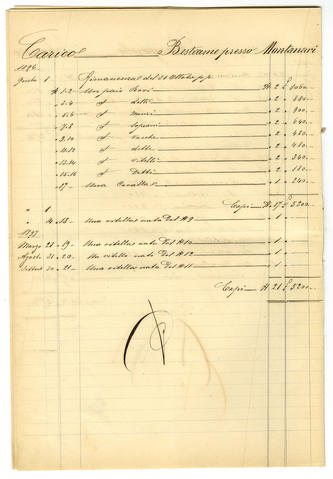 Carico Bestiame presso Montanari
1896
1 Rimanenza al del 31 Ottobre p.p.
1.2 Un paio Bovi N. 2 £ 1060
3.4 I d. detti 2 " 880
5.6 I d. 2 " 900
7.8 I d. 2 " 640
9.10 I d. Vacche 2 " 480
11.12 I d. dette 2 " 460
13.14 I d. Vitelli 2 " 360
15.16 I d. Detti 2 " 180
17 Una Cavalla 1 " 240
1 Capi N. 17 £ 5200
" 4 18 Una vitella nata del N 9 1
1897
Marzo 28 19 Una vitella nata del N 10 1
Agosto 31 20 Un vitello nato del N 12 1
30 21 Una vitella nata del N 11 1
Capi N 21 £ 5200